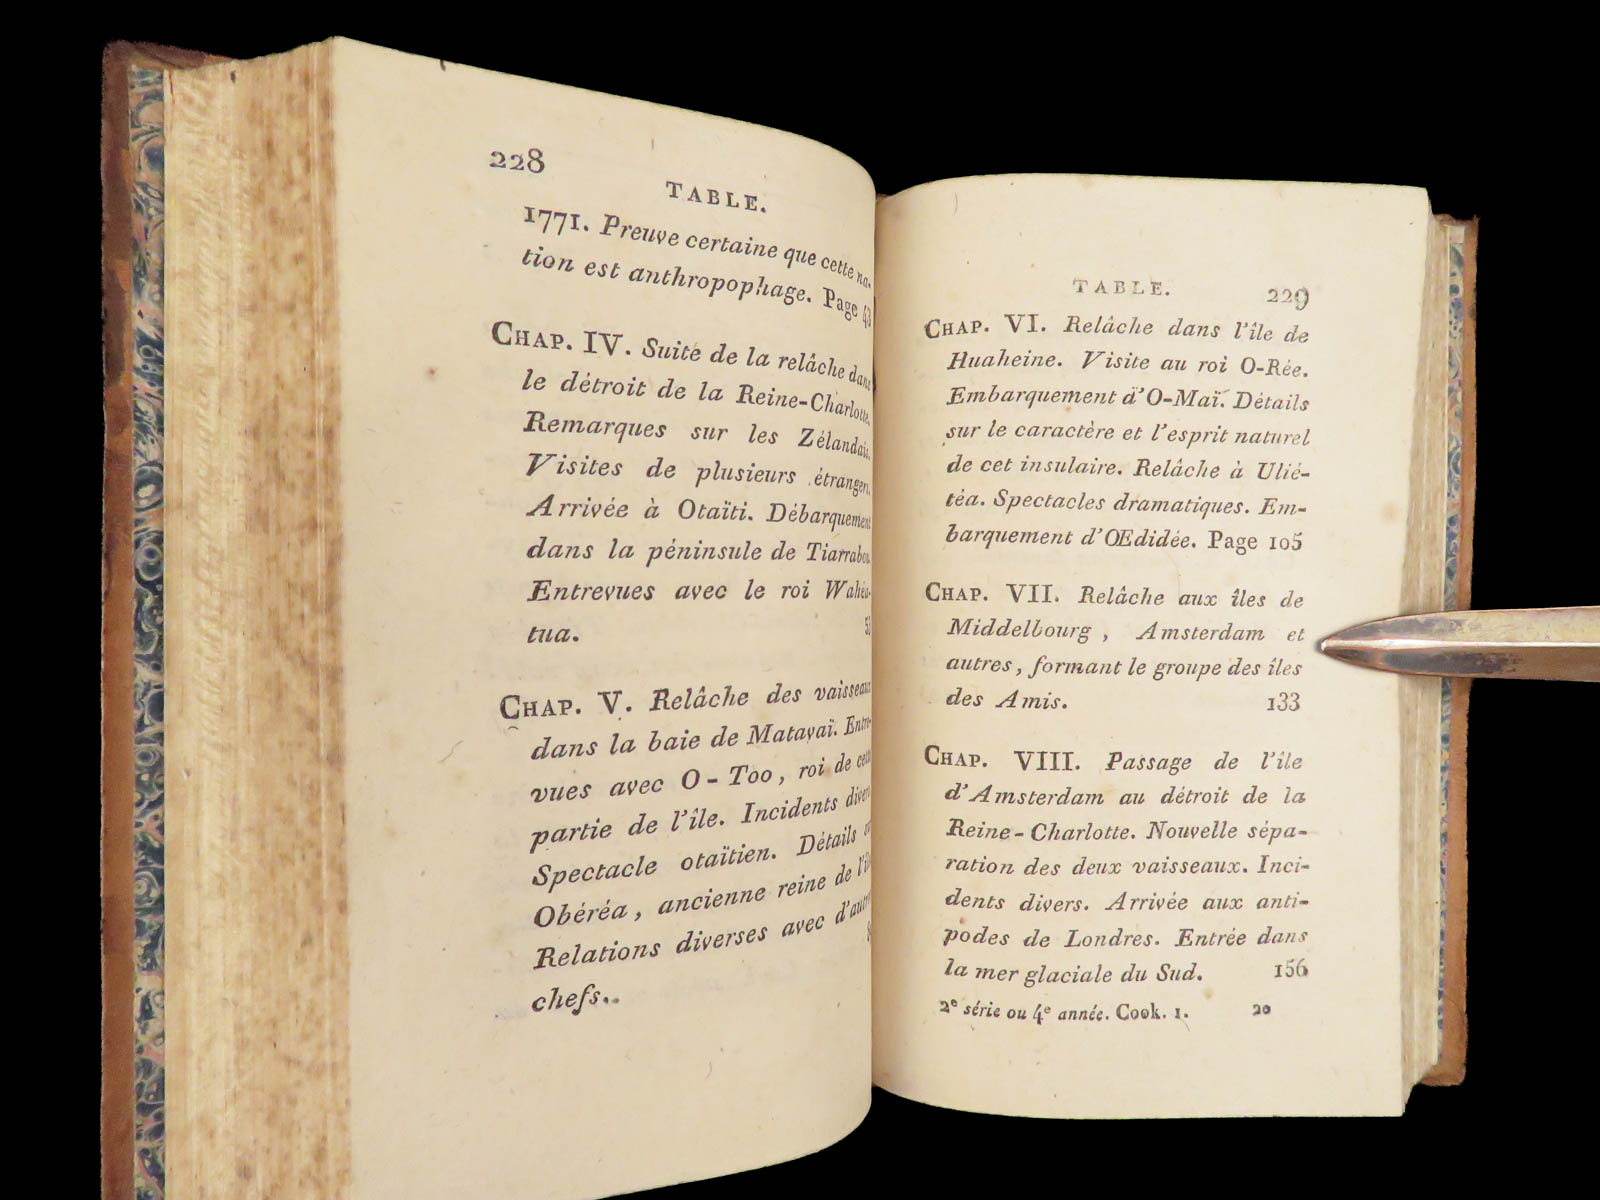 228
TABLE.
1771. Preuve certaine que cette na-
tion est anthropophage. Page 43
CHAP. IV. Suite de la relâche dans
le détroit de la Reine-Charlotte.
Remarques sur les Zélandais.
Visites de plusieurs étrangers.
Arrivée à Otaïti. Débarquement
dans la péninsule de Tiarrabou.
Entrevues avec le roi Wahéa-
tua.
CHAP. V. Relâche des vaisseaux
dans la baie de Matavaï. Entre-
vues avec O-Too, roi de cette
partie de l'île. Incidents divers
Spectacle otaïtien. Détails
Obéréa, ancienne reine de l'île
Relations diverses avec d'autres
chefs.
TABLE. 229
CHAP. VI. Relâche dans l'île de
Huaheine. Visite au roi O-Rée.
Embarquement d'O-Maï. Détails
sur le caractère et l'esprit naturel
de cet insulaire. Relâche à Ulié-
téa. Spectacles dramatiques. Em-
barquement d'Œdidée. Page 105
CHAP. VII. Relâche aux îles de
Middelbourg, Amsterdam et
autres, formant le groupe des îles
des Amis. 133
CHAP. VIII. Passage de l'île
d'Amsterdam au détroit de la
Reine-Charlotte. Nouvelle sépa-
ration des deux vaisseaux. Inci-
dents divers. Arrivée aux anti-
podes de Londres. Entrée dans
la mer glaciale du Sud. 156
2e série ou 4e année. Cook. 1. 20